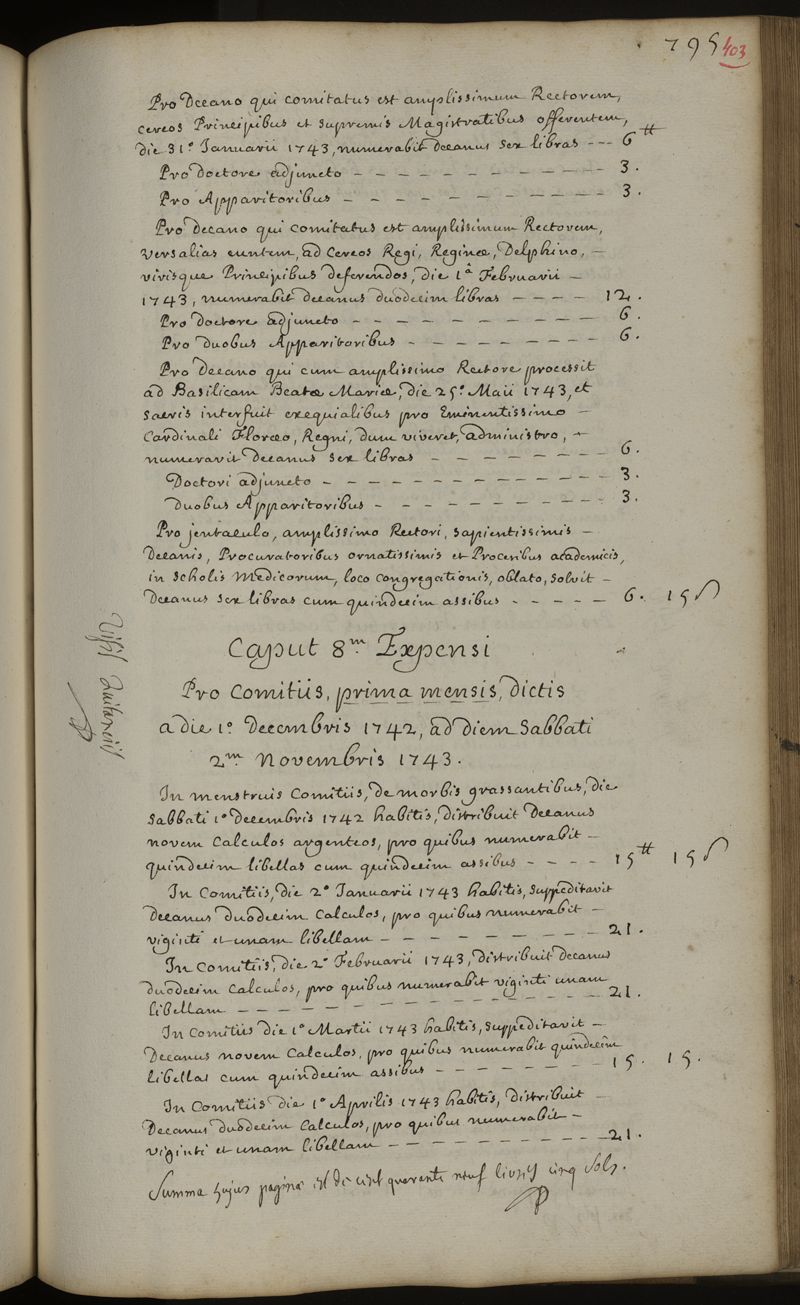 795 403
Pro Decano qui comitatus est amplissimum Rectorem,
cereos Principibus et supremis Magistratibus offerentem,
die 31º Januarii 1743, numerabit decanus sex libras --- 6 ₶
Pro doctore adjuncto - - - - - - - - - - - 3.
Pro Apparitoribus - - - - - - - - - - - 3.
Pro decano qui comitatus est amplissimum Rectorem,
Versalias euntem, ad Cereos Regi, Reginæ, Delphino, -
vivisque Principibus deferendos, die 1ª Februarii -
1743, numerabit decanus duodecim libras - - - - 12.
Pro doctore adjuncto - - - - - - - - - - - 6.
Pro duobus Apparitoribus - - - - - - - - - 6.
Pro Decano qui cum amplissimo Rectore processit
ad Basilicam Beatæ Mariæ, die 25º Maii 1743, et
sacris interfuit exequialibus pro Eminentissimo -
Cardinali Floræo, Regni, dum viveret, administro, -
numeravit decanus sex libras - - - - - - - 6.
Doctori adjuncto - - - - - - - - - - - 3.
duobus Apparitoribus - - - - - - - - - 3.
Pro jentaculo, amplissimo Rectori, sapientissimis -
Decanis, Procuratoribus ornatissimis et Proceribus academicis,
in scholis Medicorum, loco congregationis, oblato, solvit -
Decanus sex libras cum quindecim assibus - - - - - 6. 15 ſ
Caput 8m Expensi
Pro Comitiis, prima mensis, dictis
a die 1º Decembris 1742, ad diem Sabbati
2m Novembris 1743.
In menstruis Comitiis, de morbis grassantibus, die
Sabbati 1º decembris 1742 habitis, distribuit Decanus
novem Calculos argenteos, pro quibus numerabit -
quindecim libellas cum quindecim assibus - - - - 15 ₶ 15 ſ
In Comitiis, die 2º Januarii 1743 habitis, suppeditavit
Decanus duodecim Calculos, pro quibus numerabit -
viginti et unam libellam - - - - - - - - - 21.
In Comitiis, die 2º Februarii 1743, distribuit decanus
duodecim Calculos, pro quibus numerabit viginti unam
libellam - - - - - - - - - - - - - - 21.
In Comitiis die 1º Martii 1743 habitis, suppeditavit -
Decanus novem Calculos, pro quibus numerabit quindecim
libellas cum quindecim assibus - - - - - - - 15. 15.
In Comitiis die 1º Aprilis 1743 habitis, distribuit -
Decanus duodecim Calculos, pro quibus numerabit -
viginti et unam libellam - - - - - - - - - 21.
Summa hujus paginæ est de cent quarante neuf livres cinq sols.